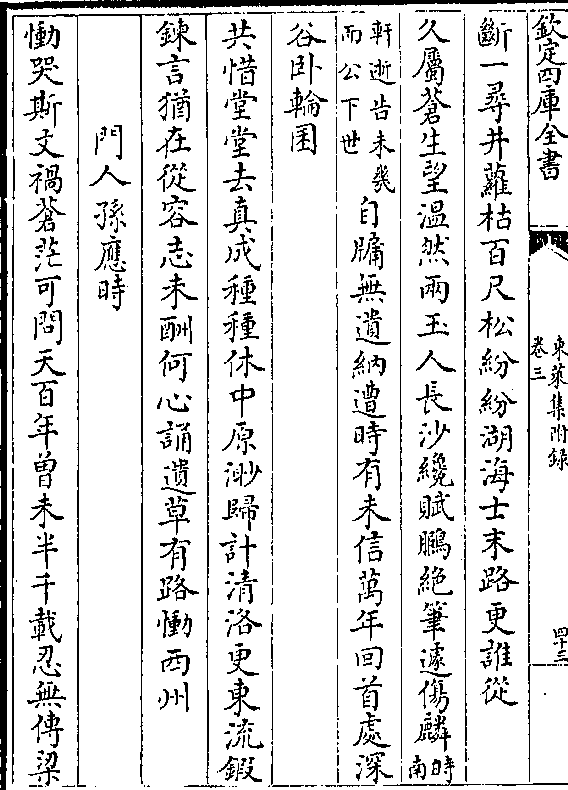 欽定四庫全書
東萊集附錄
卷三
四十三
斷一尋井蘿枯百尺松紛紛湖海士末路更誰從
久屬蒼生望溫然兩玉人長沙纔賦鵩絶筆遽傷麟時南
軒逝告未幾而公下世自牖無遺納遭時有未信萬年回首處深
谷卧輪囷
共惜堂堂去真成種種休中原渺歸計清洛更東流鍜
鍊言猶在從容志未酬何心誦遺草有路慟西州
門人孫應時
慟哭斯文禍蒼茫可問天百年曾未半千載忍無傳梁